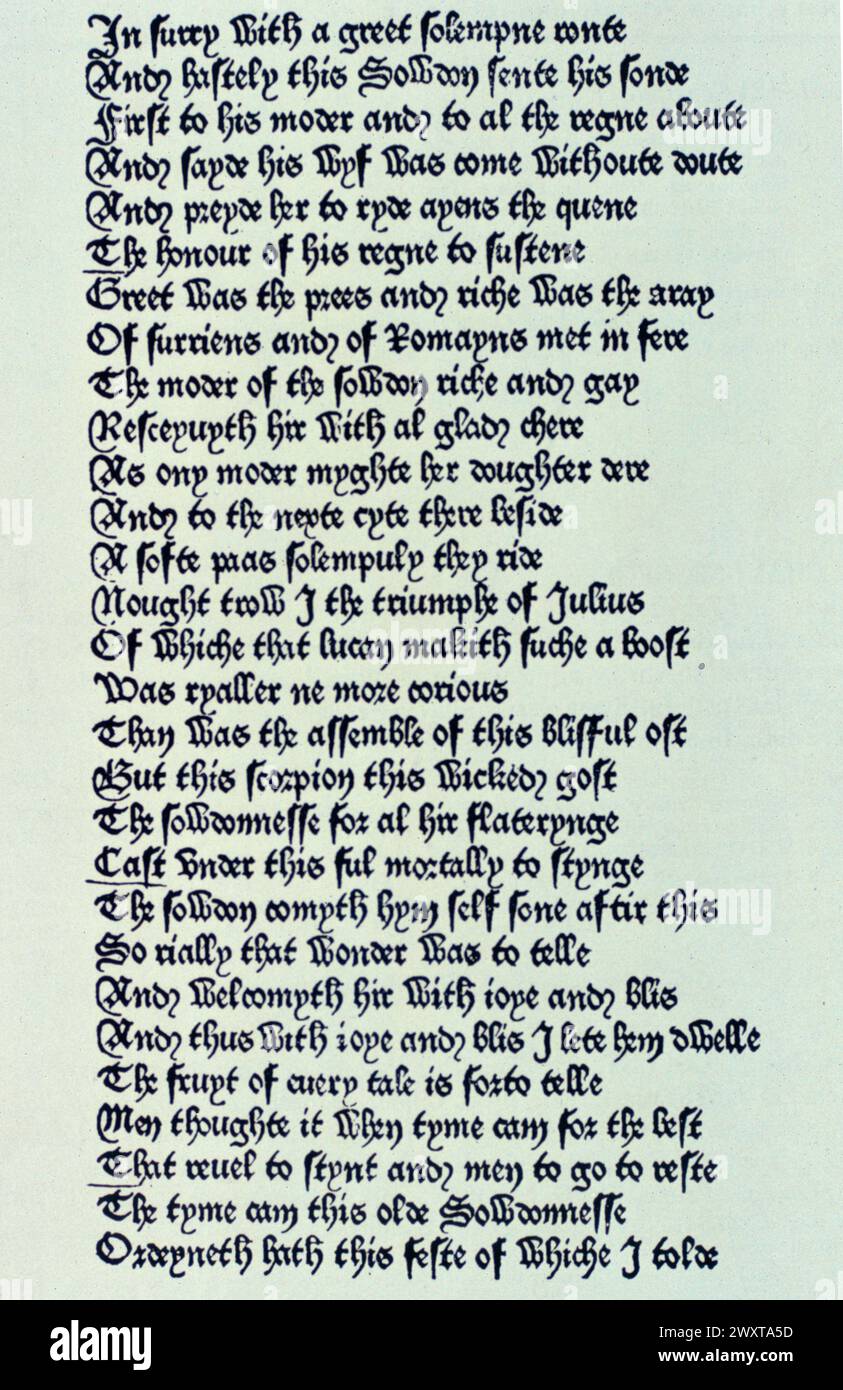 In surry with a greet solempne route
And hastely this Sowdon sente his sonde
First to his moder and to al the regne aboute
And sayde his wyf was come withoute doute
And preyde her to ryde ayens the quene
The honour of his regne to sustene
Greet was the prees and riche was the aray
Of surriens and of Romayns met in fere
The moder of the sowdon riche and gay
Resceyuyth hir with al glad chere
As ony moder myghte her doughter dere
And to the nexte cyte there beside
A softe paas solempuly they ride
Nought trow I the triumphe of Julius
Of whiche that lucan makith suche a boost
Was ryaller ne more corious
Than was the assemble of this blisful ost
But this scorpion this wicked gost
The sowdonnesse for al hir flaterynge
Cast vnder this ful mortally to stynge
The sowdon comyth hym self sone aftir this
So rially that wonder was to telle
And welcomyth hir with ioye and blis
And thus with ioye and blis I lete hem dwelle
The fruyt of euery tale is forto telle
Men thoughte it when tyme cam for the best
That reuel to stynt and men to go to reste
The tyme cam this olde Sowdonnesse
Ordeyneth hath this feste of whiche I tolde
alamy
alamy
Image ID: 2WXTA5D
www.alamy.com